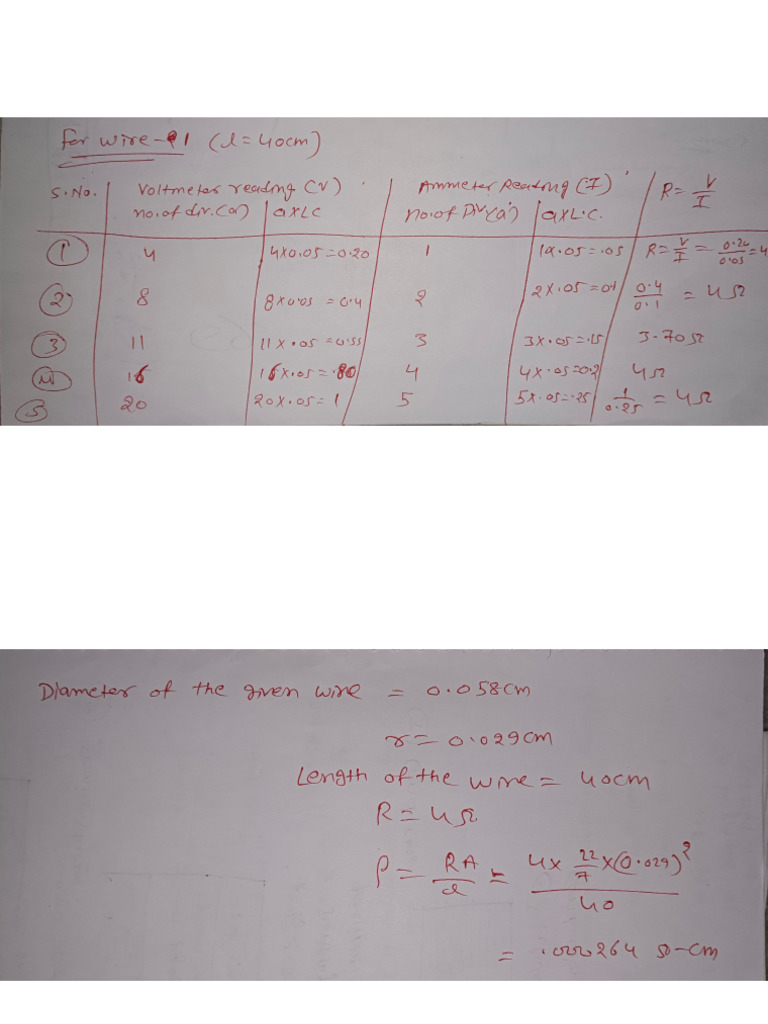 For wire-1 (l=40cm)
S.No. Voltmeter reading (V) Ammeter Reading (I) R = V/I
no. of div. (a) axLC no. of Div (a) axL.C.
1 4 4x0.05=0.20 1 1x.05=.05 R = V/I = 0.20/0.05 = 4
2 8 8x0.05 = 0.4 2 2x.05=0.1 0.4/0.1 = 4Ω
3 11 11x.05 = 0.55 3 3x.05=.15 3.70Ω
4 16 16x.05 = .80 4 4x.05=0.2 4Ω
5 20 20x.05=1 5 5x.05=.25 1/0.25 = 4Ω
Diameter of the given wire = 0.058cm
r = 0.029cm
Length of the wire = 40cm
R = 4Ω
ρ = RA/l = 4x 22/7 x(0.029)²/40
= .000264 Ω-cm